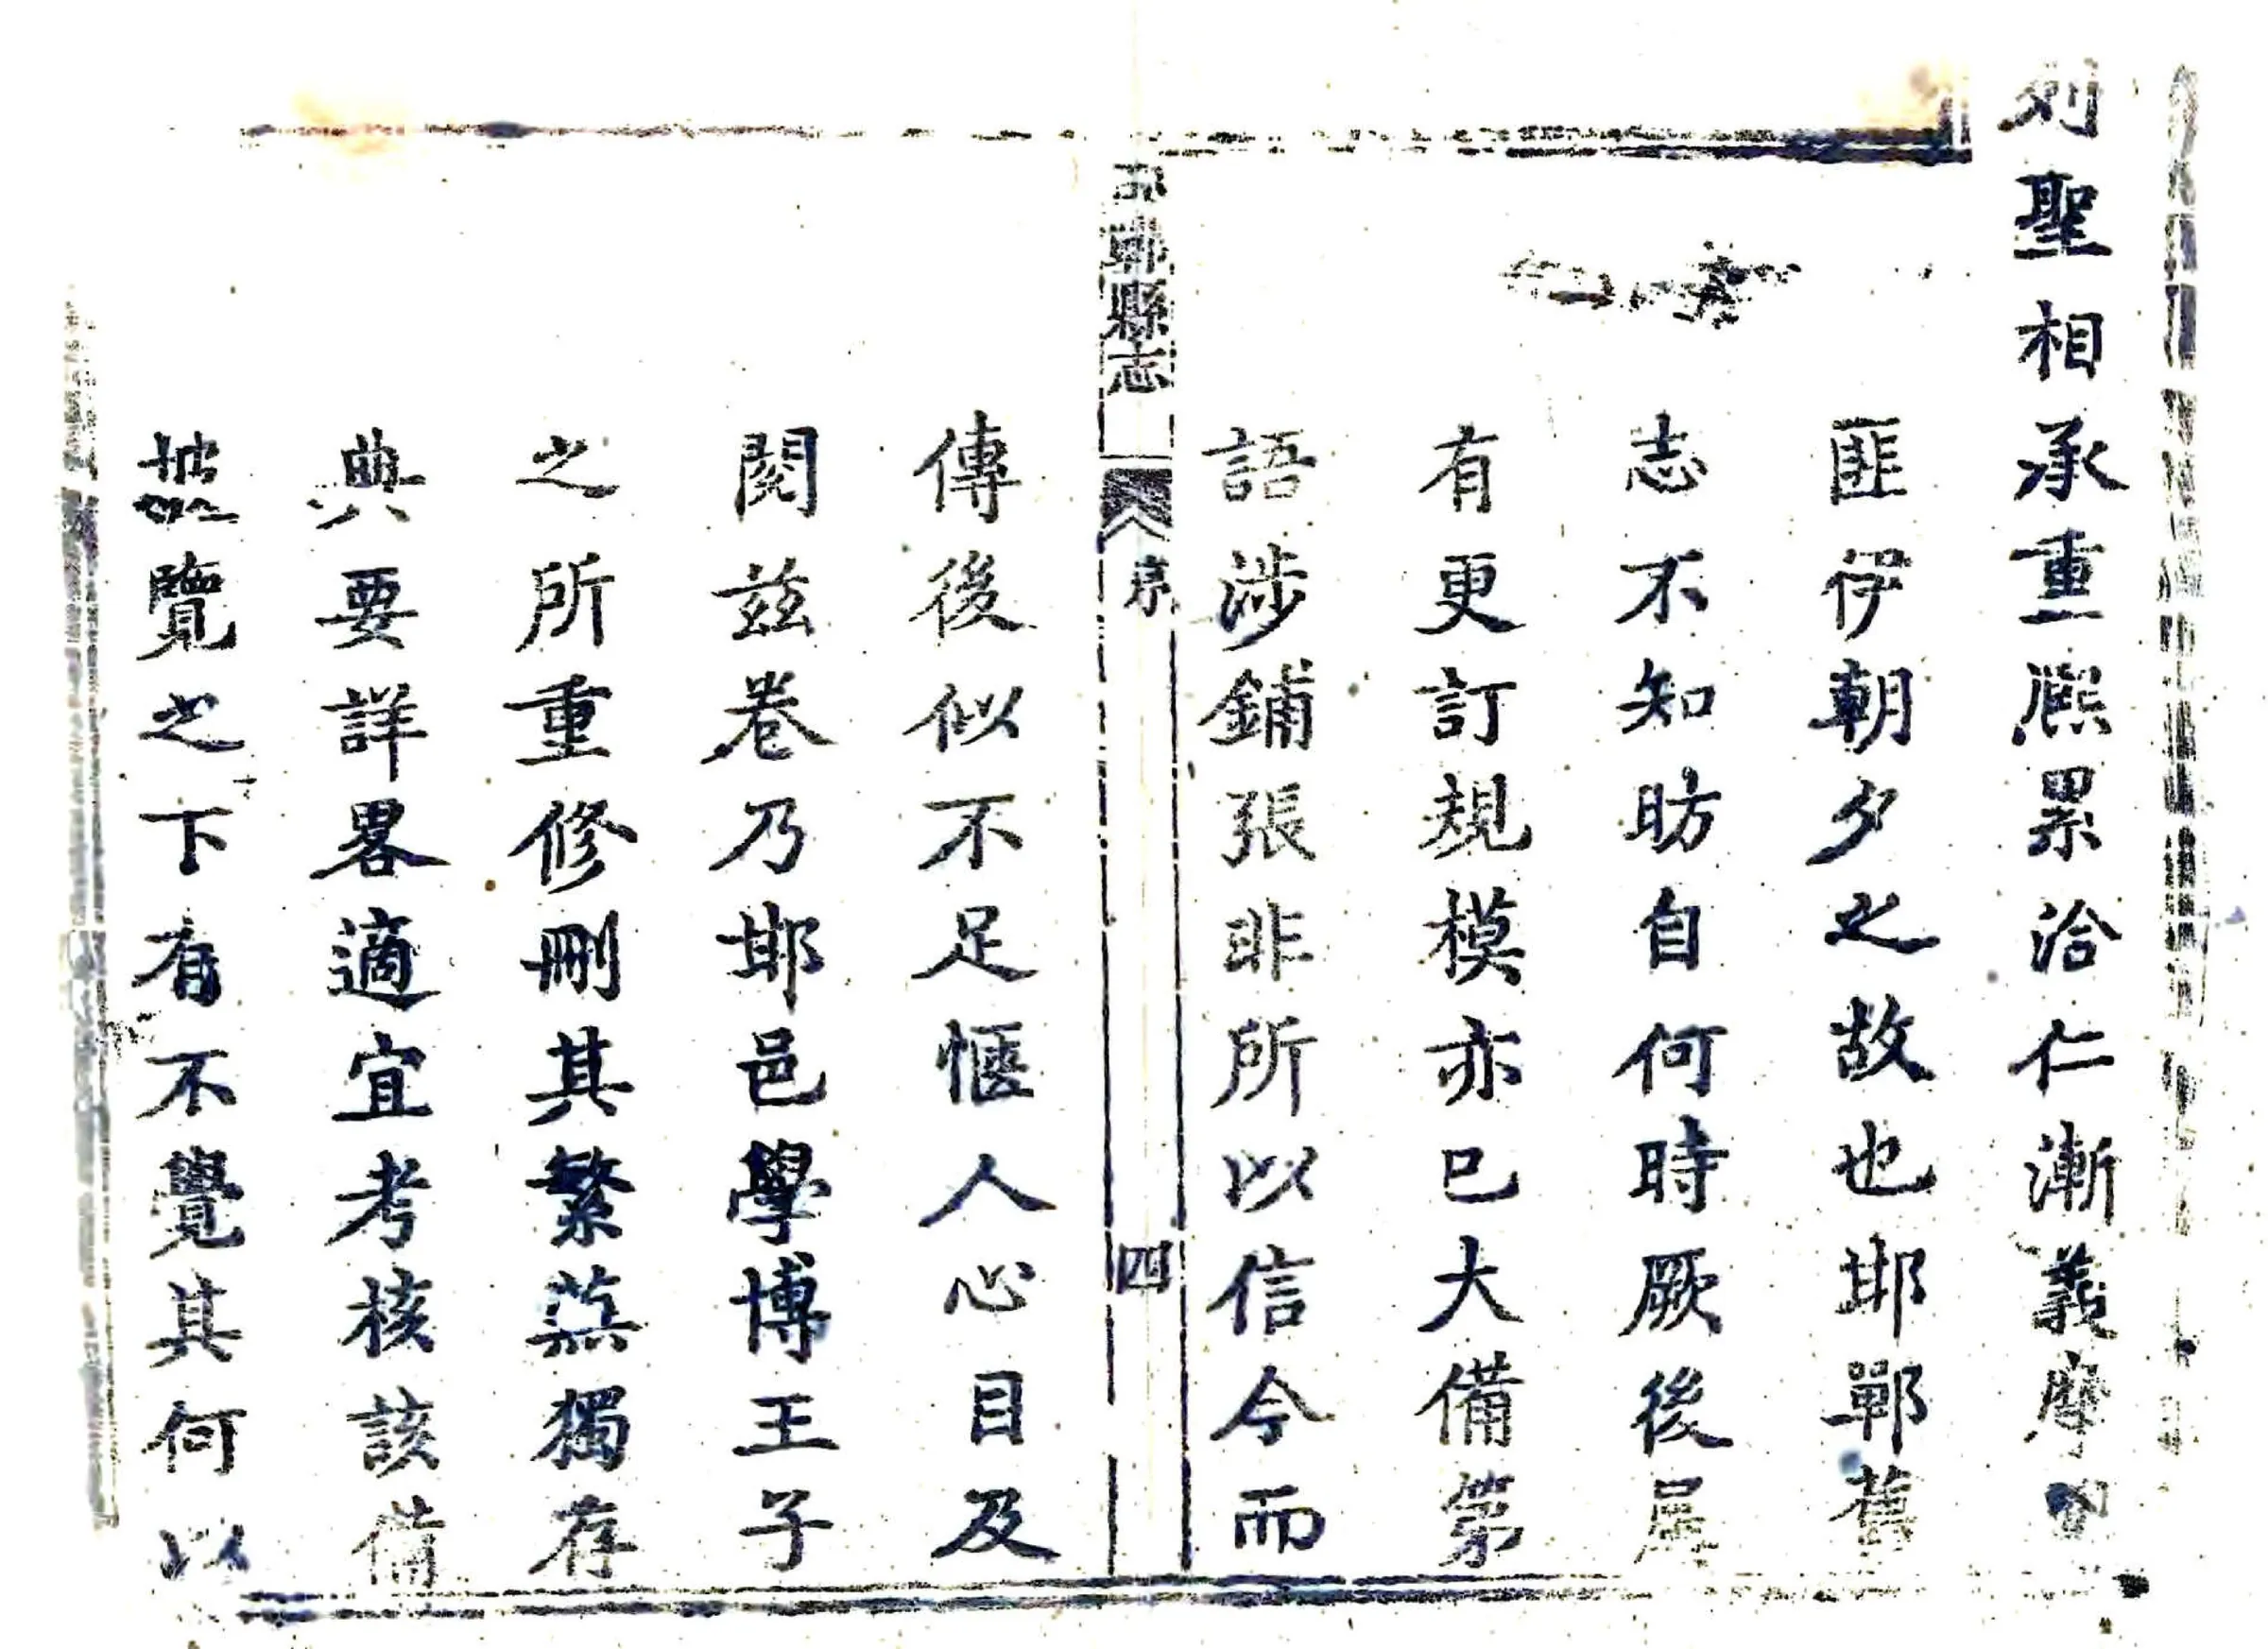 列聖相承重熙累洽仁漸義摩
匪伊朝夕之故也邯鄲舊
志不知昉自何時厥後屢
有更訂規模亦已大備第
語涉鋪張非所以信今而
邯鄲縣志 序 四
傳後似不足愜人心目及
閱兹卷乃邯邑學博王子
之所重修刪其繁蕪獨存
典要詳畧適宜考核該備
披覽之下有不覺其何以